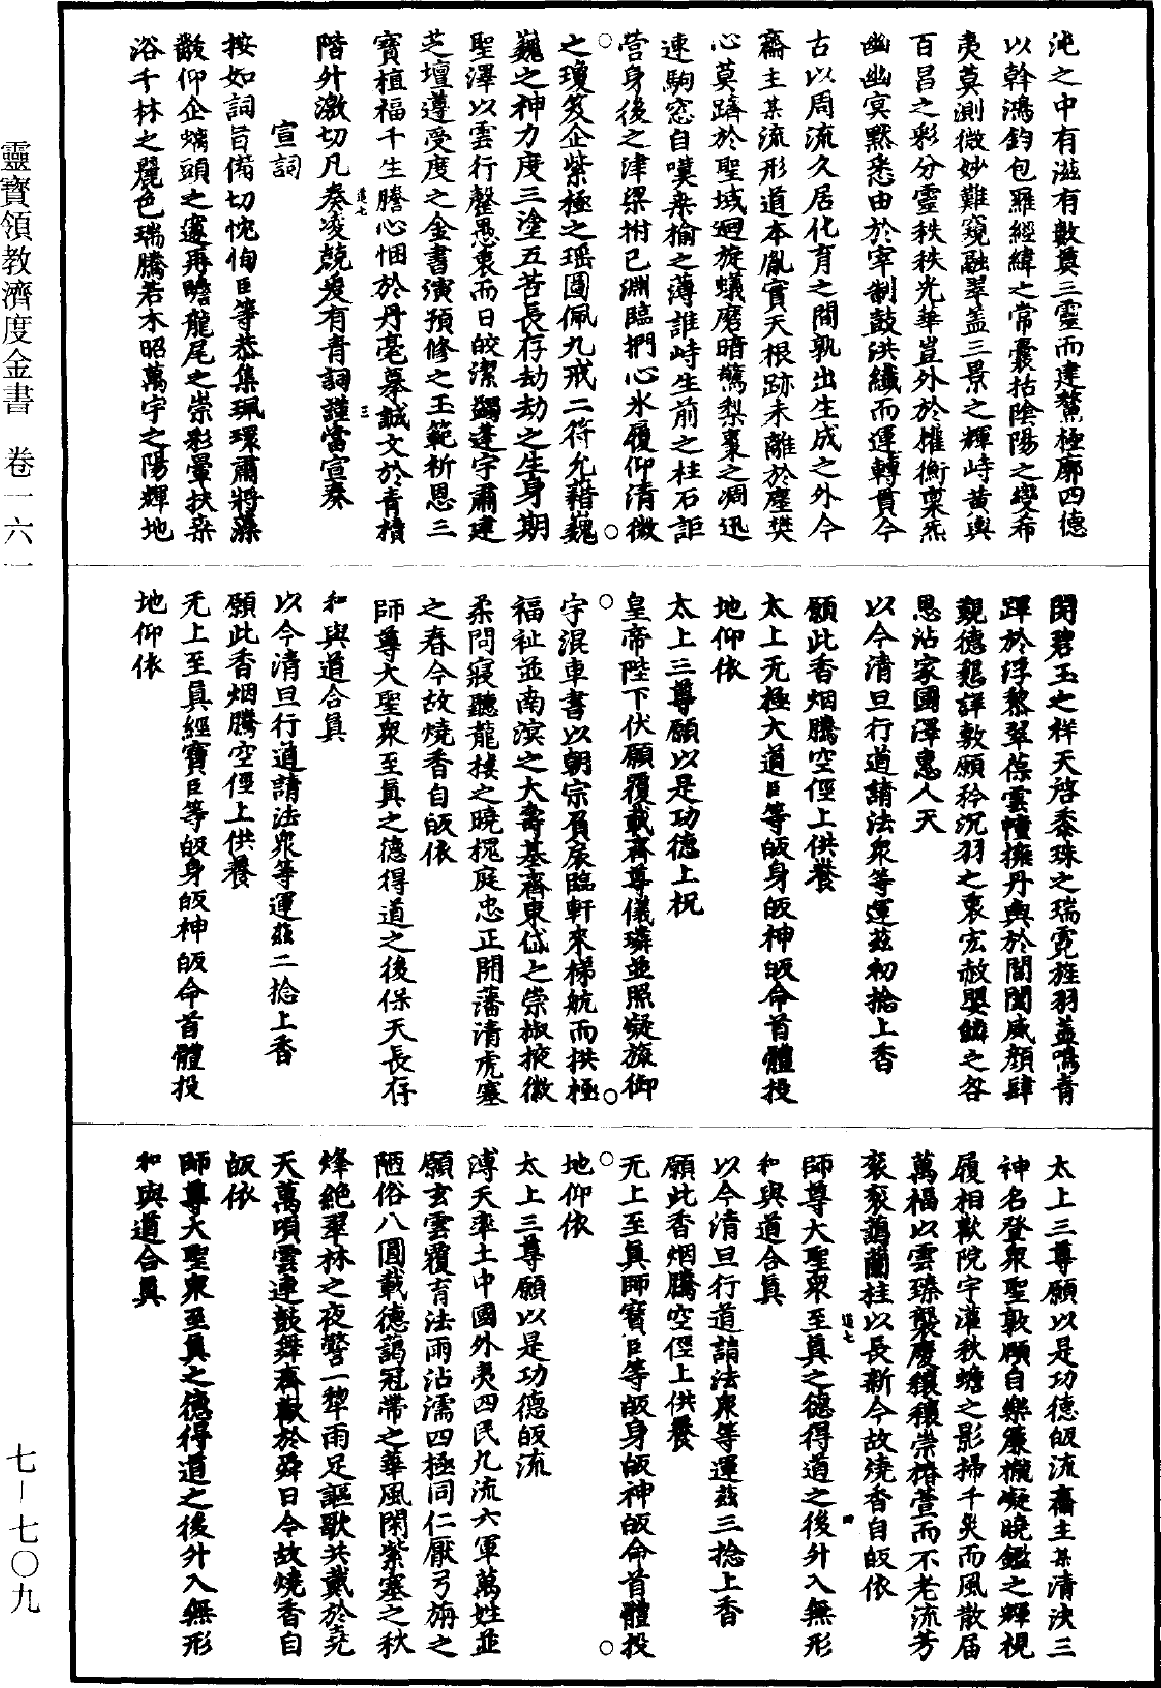 靈寶領教濟度金書　卷一六一
七—七〇九
沌之中有滋有數奠三靈而建鰲極廓四德
以斡鴻鈞包羅經緯之常囊括陰陽之變希
夷莫測微妙難窺融翠蓋三景之輝峙黃輿
百昌之彩分靈秩秩光華豈外於權衡稟炁
幽幽冥默悉由於宰制鼓洪纖而運轉貫今
古以周流久居化育之間孰出生成之外今
齋主某流形道本胤實天根跡未離於塵樊
心莫躋於聖域迴旋蟻磨暗驚梨棗之凋迅
速駒窓自嘆桑榆之薄誰峙生前之柱石詎
營身後之津梁拊己淵臨捫心氷履仰清微
之瓊笈企紫極之瑶圖佩九戒二符允藉巍
巍之神力度三塗五苦長存劫劫之生身期
聖澤以雲行罄愚衷而日皎潔蠲蓬宇肅建
芝壇遵受度之金書演預修之玉範祈恩三
寶植福千生膽心悃於丹毫摹誠文於青櫝
階外激切凡奏凌兢爰有青詞謹當宣奏
宣詞
按如詞旨備切愧恂臣等恭集珮環肅將藻
黻仰企螭頭之邃再瞻龍尾之崇彩暈扶桒
浴千林之麗色瑞騰若木昭萬宇之陽輝地
開碧玉之祥天啓黍珠之瑞霓旌羽蓋鳴青
蹕於浮黎翠葆雲幢擁丹輿於閶闔威顏肆
覲德懇詳敦願矜沉羽之衷宏赦嬰鱗之咎
恩沾家國澤惠人天
以今清旦行道請法衆等運茲初捻上香
願此香烟騰空徑上供養
太上无極大道臣等皈身皈神皈命首體投
地仰依
太上三尊願以是功德上祝
皇帝陛下伏願覆載齊尊儀璘並照凝旒御
宇混車書以朝宗負扆臨軒來梯航而拱極
福祉並南溟之大壽基齊東岱之崇椒掖徽
柔問寢聽龍摟之曉槐庭忠正開藩清虎塞
之春今故燒香自皈依
師尊大聖衆至眞之德得道之後保天長存
和與道合眞
以今清旦行道請法衆等運茲二捻上香
願此香烟騰空徑上供養
无上至眞經寶臣等皈身皈神皈命首體投
地仰依
太上三尊願以是功德皈流齋主某清決三
神名登衆聖敦願自樂簾櫳凝曉鑑之輝視
履相歡院宇濯秋蟾之影掃千災而風散届
萬福以雲臻襲慶穰穰崇椿萱而不老流芳
衮衮藹蘭桂以長新今故燒香自皈依
師尊大聖衆至眞之德得道之後升入無形
和與道合眞
以今清旦行道請法衆等運茲三捻上香
願此香烟騰空徑上供養
无上至眞師寶臣等皈身皈神皈命首體投
地仰依
太上三尊願以是功德皈流
溥天率土中國外夷四民九流六軍萬姓並
願玄雲覆育法雨沾濡四極同仁厭弓旃之
陋俗八圓載德藹冠帶之華風閑紫塞之秋
烽絶翠林之夜警一犂雨足謳歌共戴於堯
天萬唄雲連鼓舞齊歡於舜日今故燒香自
皈依
師尊大聖衆至眞之德得道之後升入無形
和與道合眞